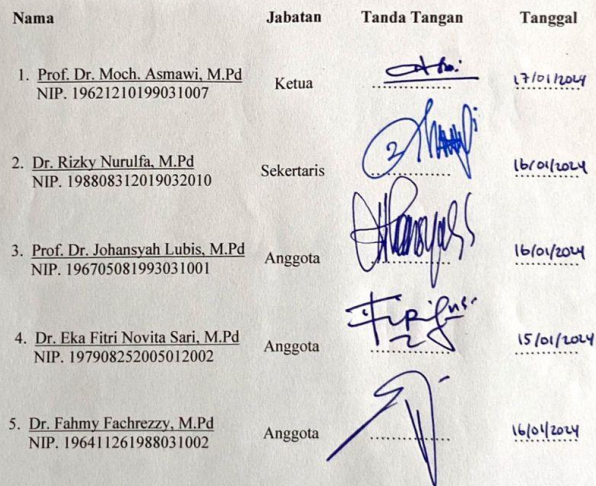 Nama Jabatan Tanda Tangan Tanggal
1. Prof. Dr. Moch. Asmawi, M.Pd
NIP. 19621210199031007
Ketua
17/01/2024
2. Dr. Rizky Nurulfa, M.Pd
NIP. 198808312019032010
Sekertaris
16/01/2024
3. Prof. Dr. Johansyah Lubis, M.Pd
NIP. 196705081993031001
Anggota
16/01/2024
4. Dr. Eka Fitri Novita Sari, M.Pd
NIP. 197908252005012002
Anggota
15/01/2024
5. Dr. Fahmy Fachrezzy, M.Pd
NIP. 196411261988031002
Anggota
16/01/2024